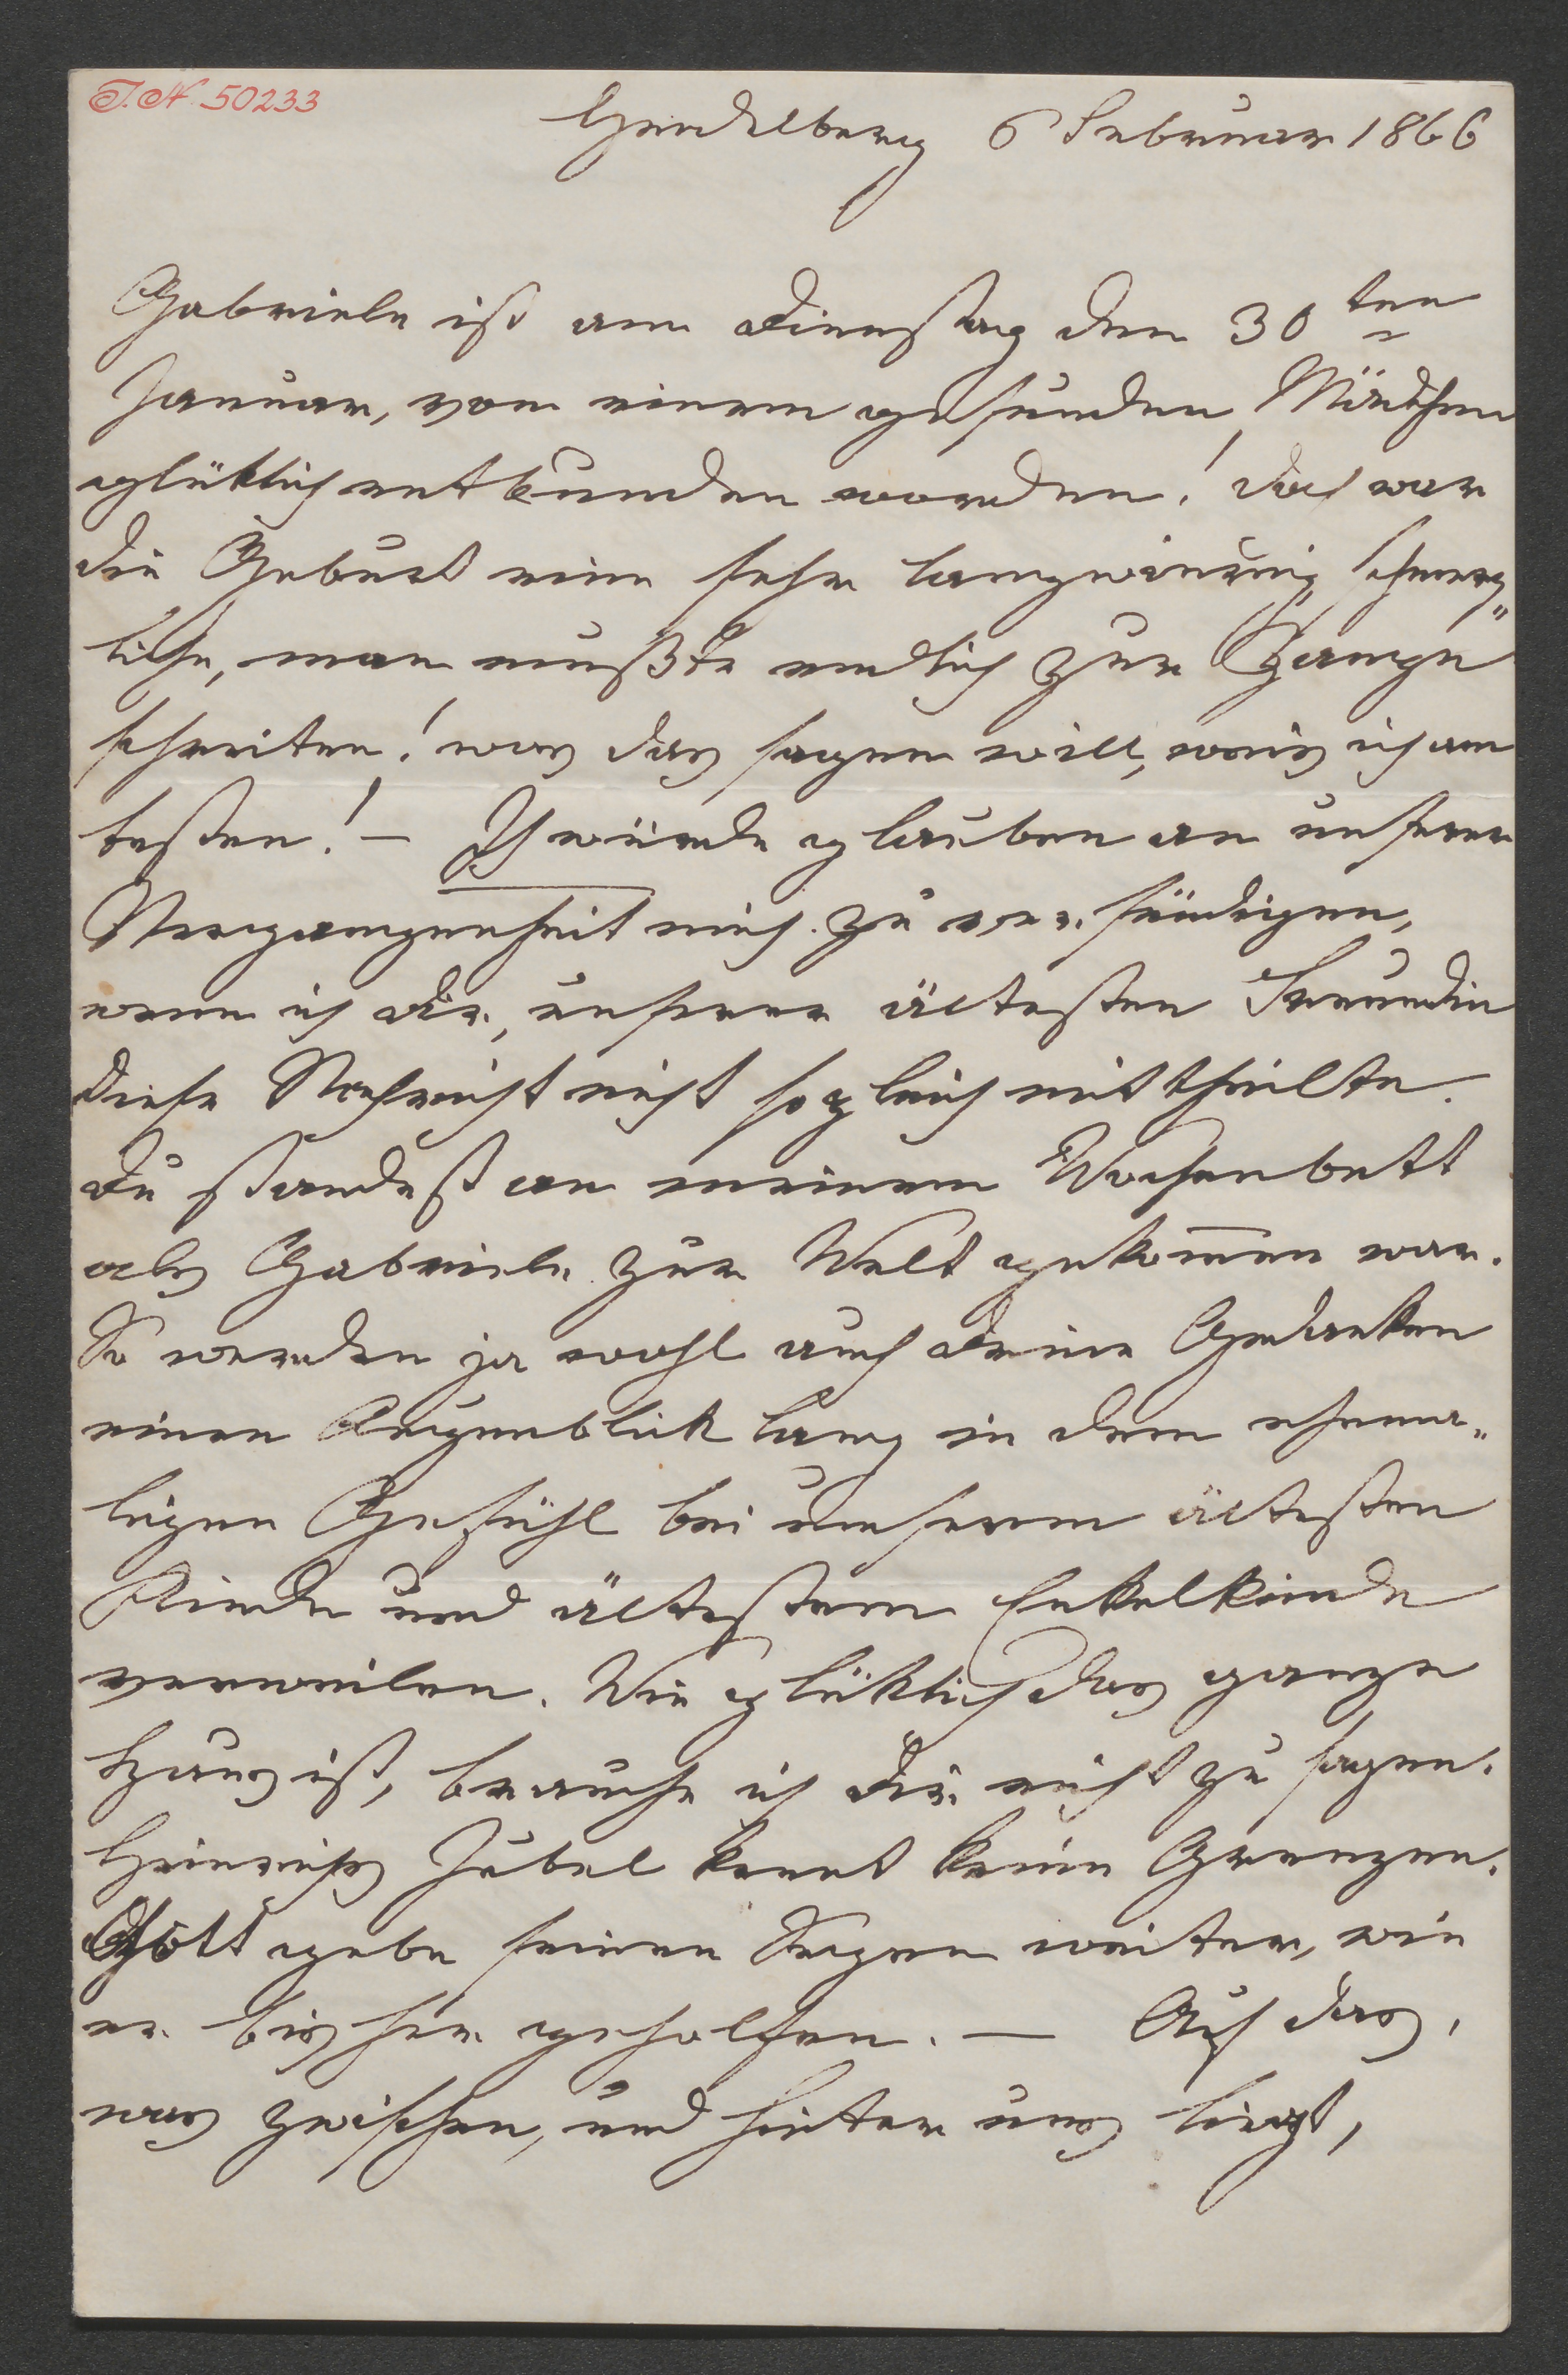 I.N. 50233
Heidelberg 6 Februar 1866
Gabriele ist am Dienstag den 30ten
Januar, von einem gesunden Mädchen
glüklich entbunden worden! doch war
die Geburt eine sehr langwierig, schmerz„
liche, man mußte endlich zur Zange
schreiten! was das sagen will, weis ich am
besten! – Ich würde glauben an unserer
Vergangenheit mich zu versündigen,
wenn ich dir, unserer ältesten Freundin
diese Nachricht nicht sogleich mittheilte.
Du standest an meinem Wochenbett
als Gabriele zur Welt gekom̄en war.
So werden ja wohl auch deine Gedanken
einen Augenblik lang in dem ehema„
ligen Gefühl bei unserem ältesten
Kinde und ältestem Enkelkinde
verweilen. Wie glüklich das ganze
Haus ist, brauche ich dir nicht zu sagen.
Heinrichs Jubel kent keine Grenzen.
Gott gebe seinen Segen weiter, wie
er bisher geholfen. – Auf das,
was zwischen, und hinter uns liegt,